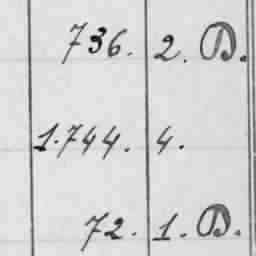 736. 2. D.
1.744. 4.
72. 1. D.